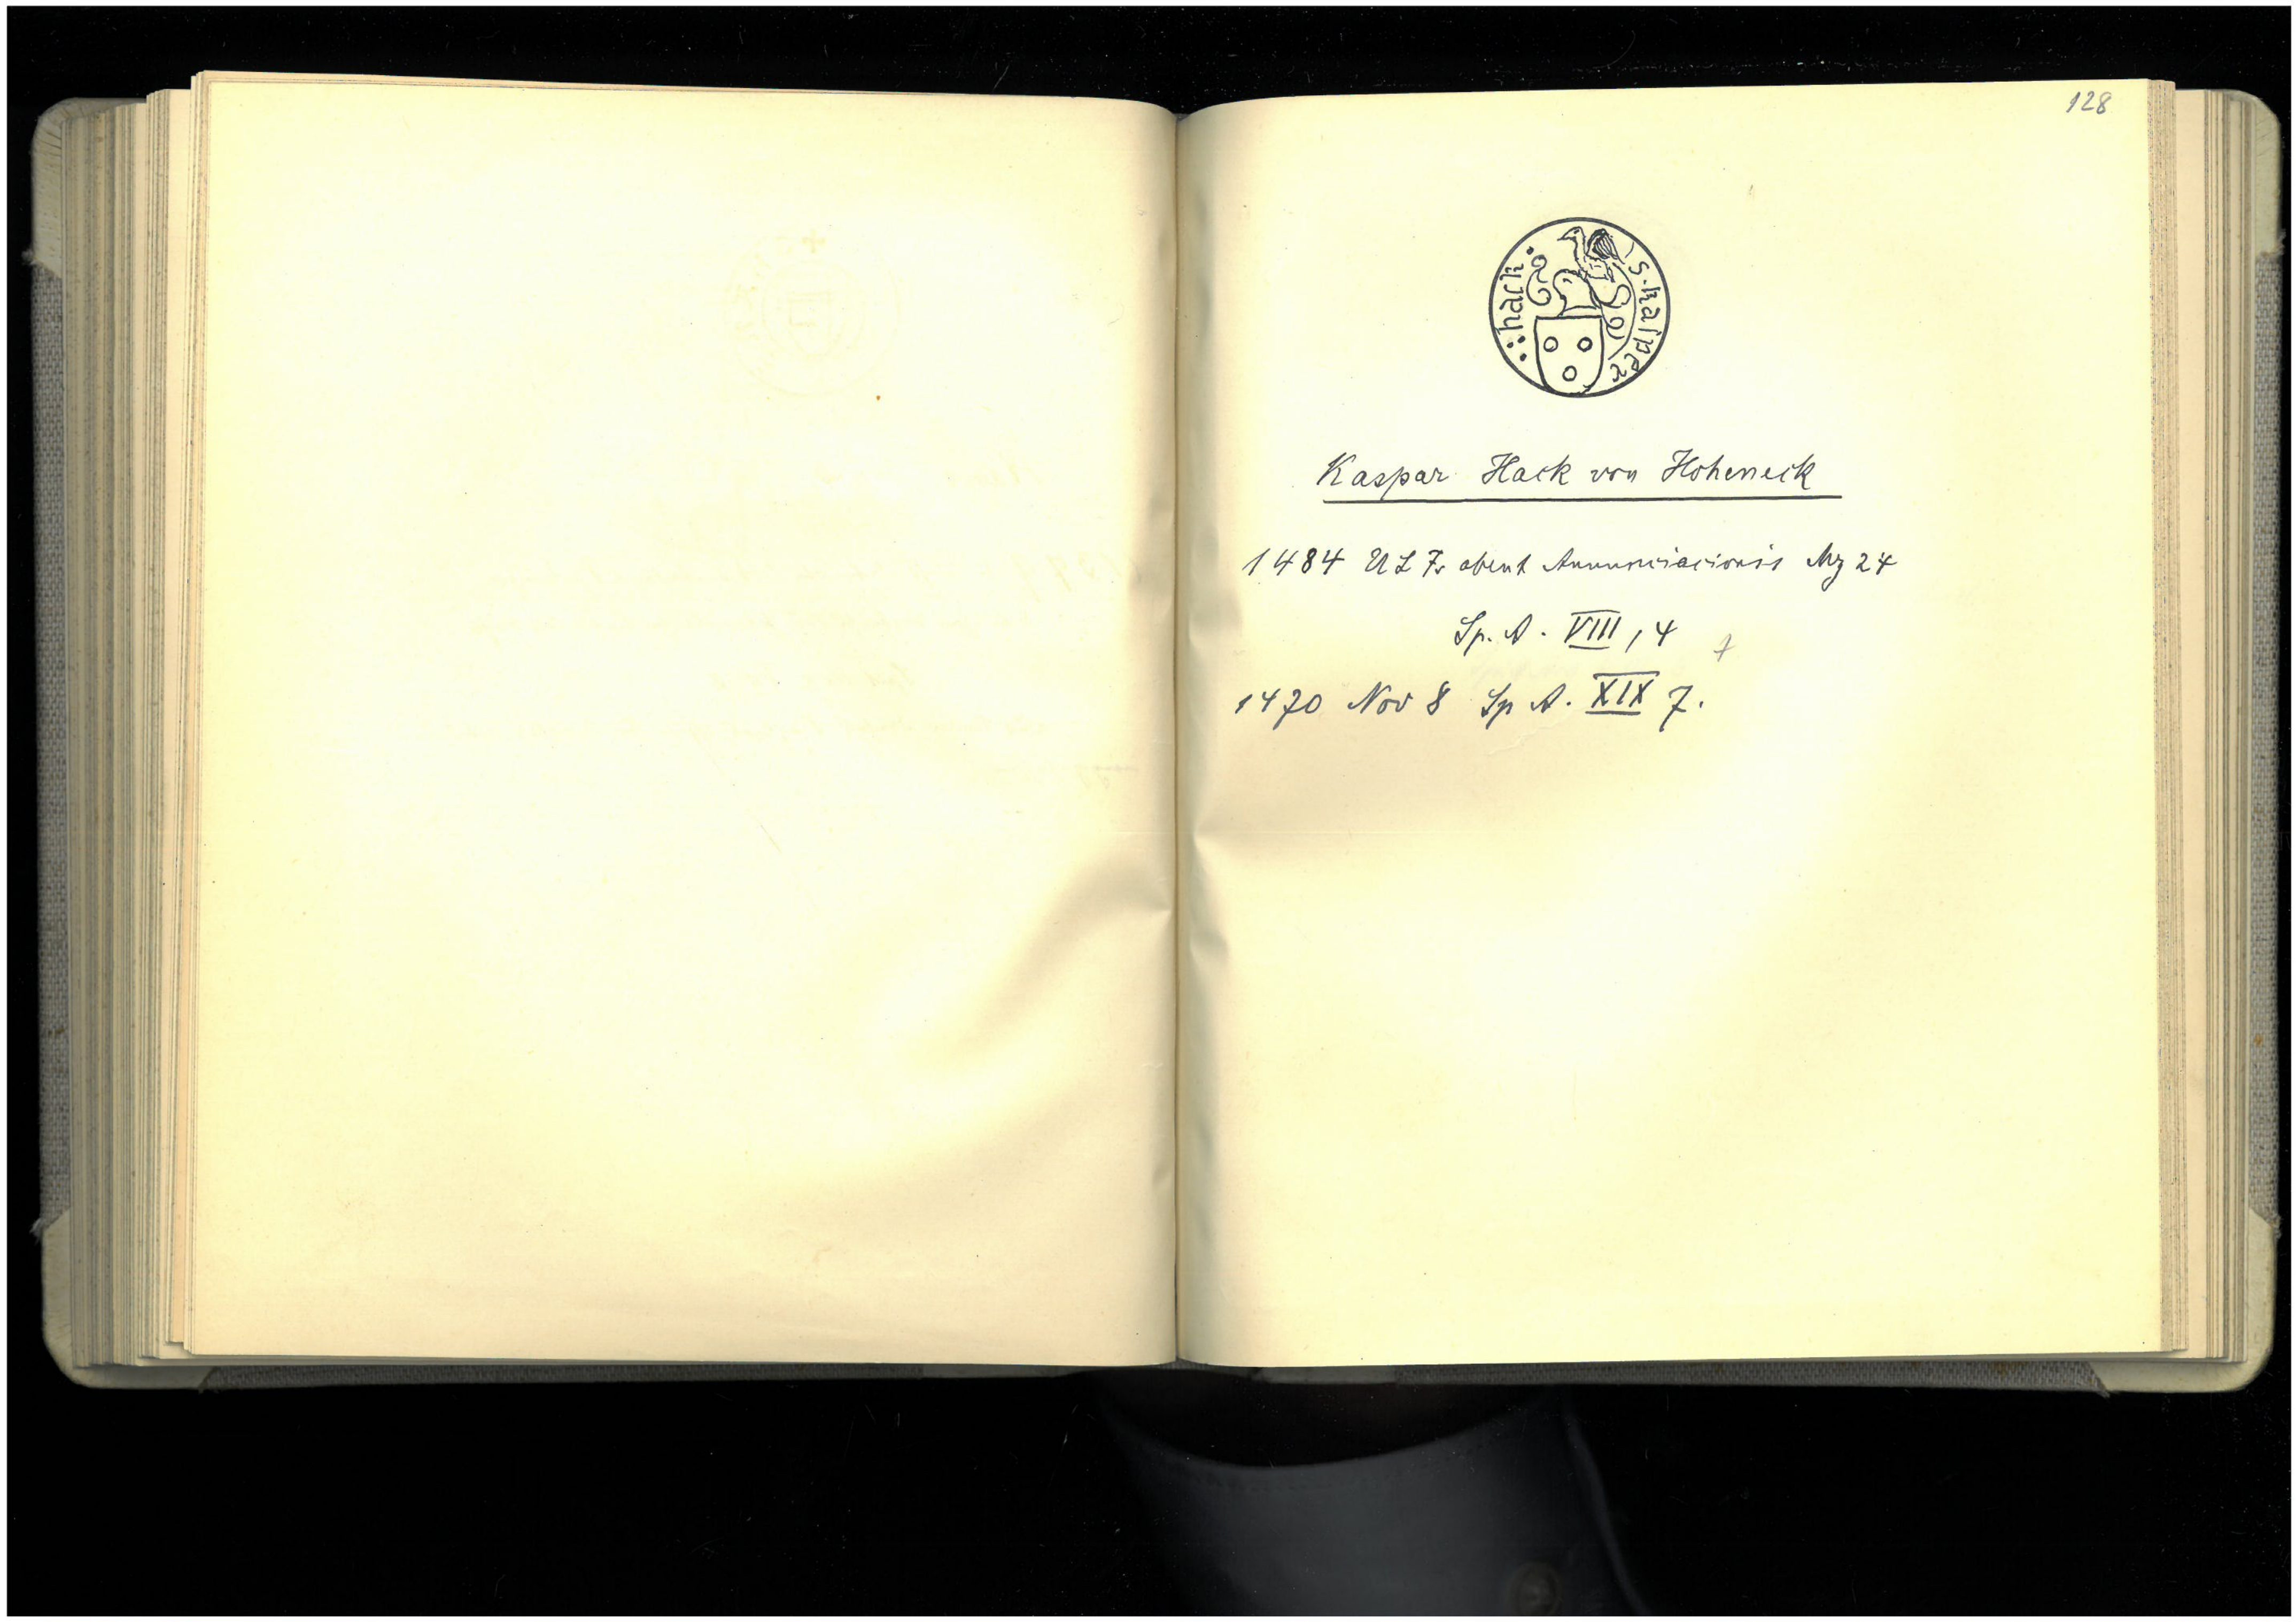 128
s. kasper hack
Kaspar Hack von Hoheneck
1484 U L Fr abent Annunciacionis Mz 24
Sp. A. VIII, 4
1470 Nov 8 Sp A. XIX 7.